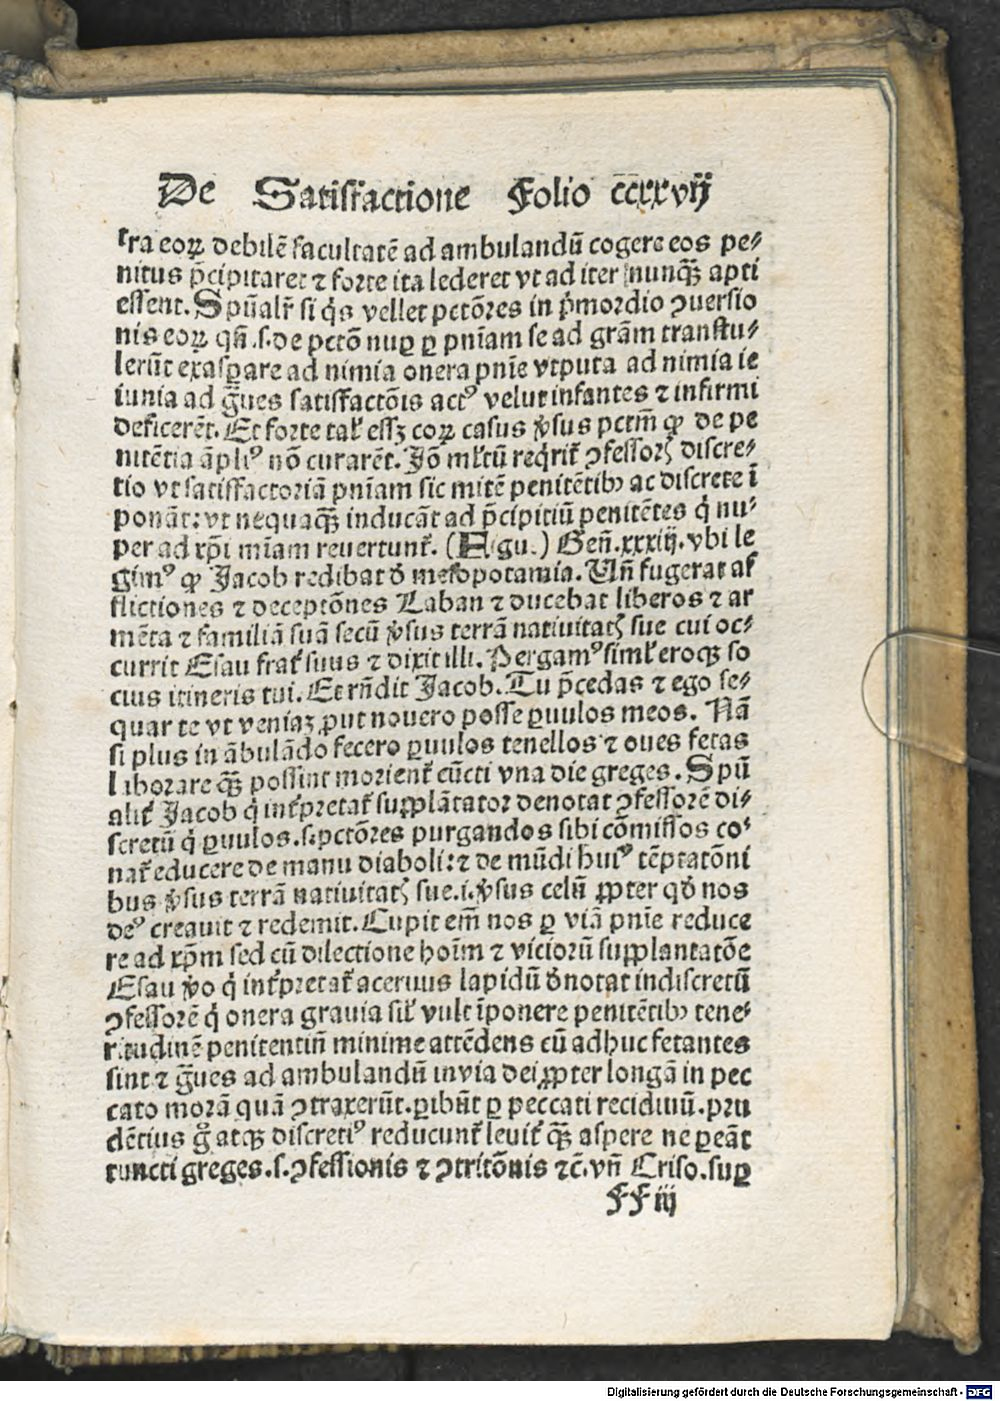 De Satisfactione Folio c̄c̄xxvij
tra eoꝝ debilē facultatē ad ambulandū cogere eos pe⸗
nitus p̄cipitaret ⁊ forte ita lederet vt ad iter nunqꝫ̄ apti
essent. Spūalr̄ si q̇s vellet pctōres in p̓mordio ꝯuersio
nis eoꝝ qn̄ .s. de pctō nuꝑ ꝑ pnīam se ad grām transtu⸗
lerūt exasꝑare ad nimia onera pnīe vtputa ad nimia ie
iunia ad g̃ues satisfactōis actꝰ velut infantes ⁊ infirmi
deficerēt. Et forte tal̓ essꝫ eoꝝ casus v̓sus pctm̄ ꝙ de pe
nitētia āpliꝰ nō curarēt. Jō ml̓tū req̇rit̓ ꝯfessorꝭ discre⸗
tio vt satisfactoriā pnīam sic mitē penitētibꝰ ac discrete ī
ponāt: vt nequaqꝫ̄ inducāt ad p̄cipitiū penitētes q̇ nu⸗
per ad xp̄i mīam reuertunt̓. (Figu.) Geñ.xxxiij. vbi le
gimꝰ ꝙ Jacob redibat d̓ mesopotamia. Vñ fugerat af
flictiones ⁊ deceptōnes Laban ⁊ ducebat liberos ⁊ ar
mēta ⁊ familiā suā secū v̓sus terrā natiuitatꝭ sue cui oc⸗
currit Esau frat̓ suus ⁊ dixit illi. Pergamꝰ siml̓ eroqꝫ so
cius itineris tui. Et rn̄dit Jacob. Tu p̄cedas ⁊ ego se⸗
quar te vt veniaꝫ ꝓut nouero posse ꝑuulos meos. Nā
si plus in ābulādo fecero ꝑuulos tenellos ⁊ oues fetas
liborare qꝫ̄ possint morient̓ cūcti vna die greges. Spū
alit̓ Jacob q̇ int̓pretat̓ supplātator denotat ꝯfessorē di⸗
scretū q̇ ꝑuulos .s. pctōres purgandos sibi cōmissos co⸗
nat̓ educere de manu diaboli: ⁊ de mūdi huiꝰ tēptatōni
bus v̓sus terrā natiuitatꝭ sue .i. v̓sus celū ꝓpter qd̓ nos
deꝰ creauit ⁊ redemit. Cupit em̄ nos ꝑ viā pnīe reduce
re ad xp̄m sed cū dilectione hoīm ⁊ viciorū supplantatōe
Esau v̓o q̇ int̓pretat̓ aceruus lapidū d̓notat indiscretū
ꝯfessorē q̇ onera grauia sil̓ vult īponere penitētibꝰ tene⸗
ritudinē penitentiū minime attēdens cū adhuc fetantes
sint ⁊ g̃ues ad ambulandū in via dei ꝓpter longā in pec
cato morā quā ꝯtraxerūt. ꝑibūt ꝑ peccati recidiuū. pru
dētius g̊ atqꝫ discretiꝰ reducunt̓ leuit̓ qꝫ̄ aspere ne ꝑeāt
cuncti greges .s. ꝯfessionis ⁊ ꝯtritōnis ⁊c̄. vñ Criso. suꝑ
FF iij
Digitalisierung gefördert durch die Deutsche Forschungsgemeinschaft - DFG